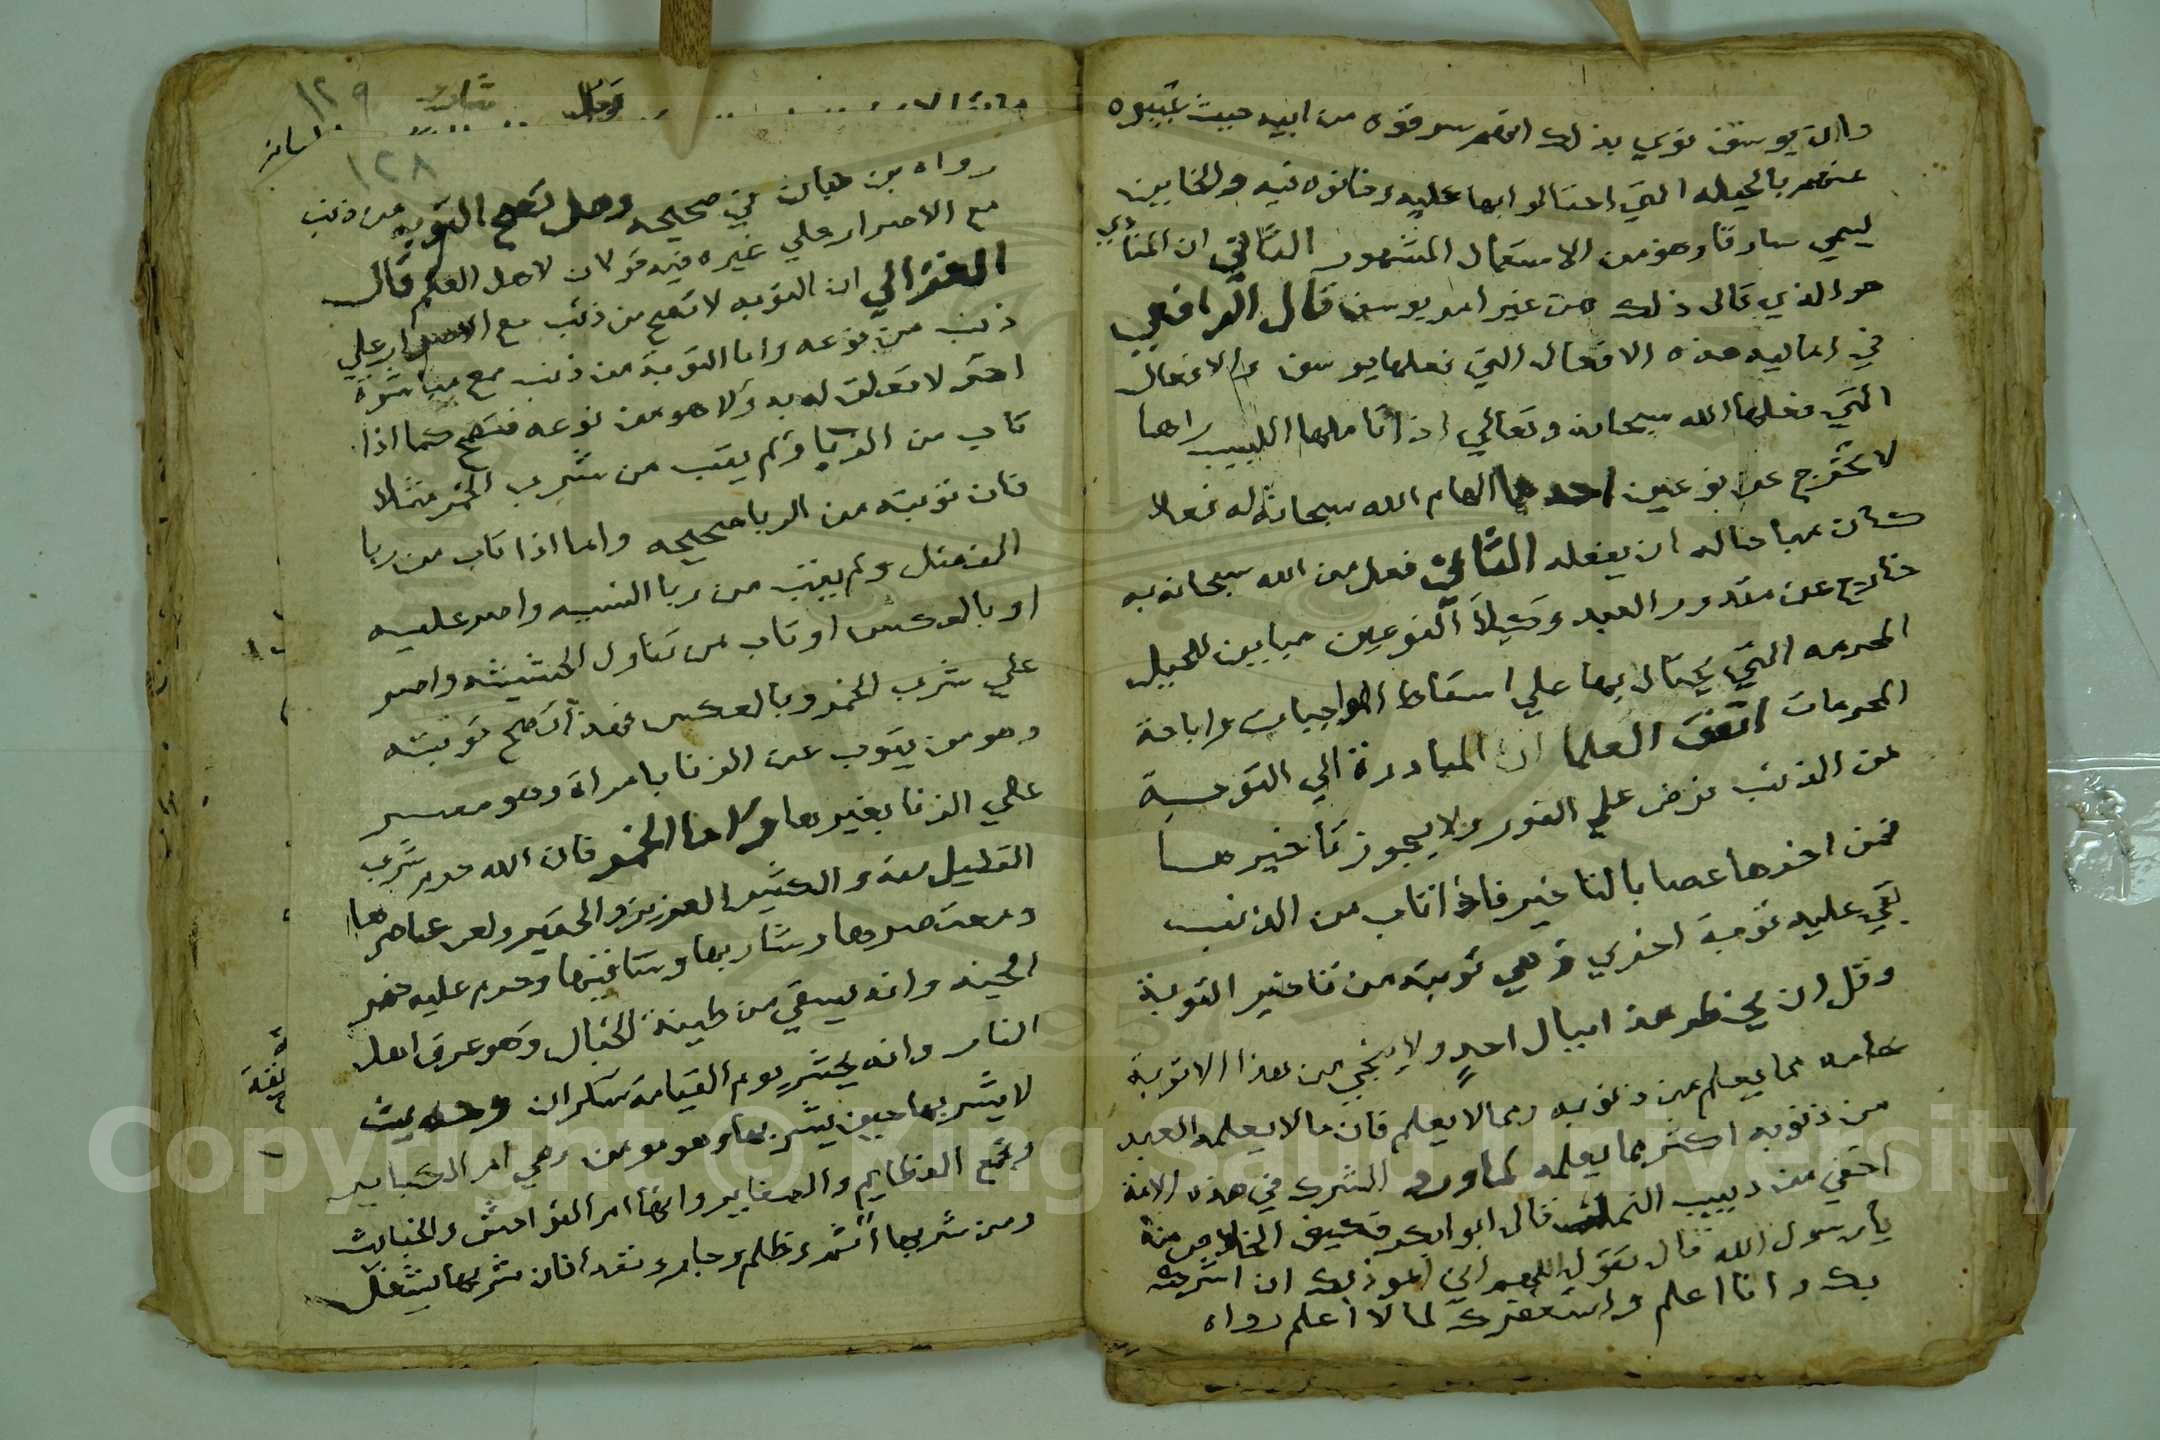 وان يوسف نوي بذلك انهم سرقوه من ابيه حيث غيبوه
عنهم بالحيله التي احتالوا بها عليه وخانوه فيه والخاين
يسمي سارقا وهو من الاستعمال المشهور الثالث ان المنادي
هو الذي قال ذلك من غير امر يوسف قال الرافعي
في اماليه هذه الافعال التي فعلها يوسف والافعال
التي فعلها الله سبحانه وتعالي اذا تاملها اللبيب راها
لا تخرج عن نوعين احدهما الهام الله سبحانه له فعلا
كان مباحا له ان يفعله الثاني فعل من الله سبحانه به
خارج عن مقدور العبد وكلا النوعين مباين للحيل
المحرمه التي يحتال بها علي اسقاط الواجبات واباحة
المحرمات اتفق العلما ان المبادرة الي التوبة
من الذنب فرض علي الفور ولا يجوز تاخيرها
فمن اخرها عصا بالتاخير فاذا تاب من الذنب
بقي عليه توبة اخري وهي توبته من تاخير التوبة
وقل ان يخطر هذا ببال احدٍ ولا ينجي من هذا الا توبة
عامه مما يعلم من ذنوبه ومما لا يعلم فان ما لا يعلمه العبد
من ذنوبه اكثر مما يعلمه كما ورد الشرك في هذه الامة
اخفي من دبيب النمل قال ابو بكر فكيف الخلاص منه
يا رسول الله قال تقول اللهم اني اعوذ بك ان اشرك
بك وانا اعلم واستغفرك لما لا اعلم رواه
١٢٩
١٢٨
رواه بن حبان في صحيحه وهل تصح التوبه من ذنب
مع الاصرار علي غيره فيه قولان لاهل العلم قال
الغزالي ان التوبه لا تصح من ذنب مع الاصرار علي
ذنب من نوعه واما التوبة من ذنب مع مباشرة
اخر لا تعلق له به ولا هو من نوعه فتصح كما اذا
تاب من الربا ولم يتب من شرب الخمر مثلا
فان توبته من الربا صحيحه واما اذا تاب من ربا
الفضل ولم يتب من ربا النسيه واصر عليه
او بالعكس او تاب من تناول الحشيشه واصر
علي شرب الخمر وبالعكس فهذا لا تصح توبته
وهو من يتوب عن الزنا بامراة وهو مصر
علي الزنا بغيرها واما الخمر فان الله حرم شرب
القليل منه والكثير العزيز والحقير ولعن عاصرها
ومعتصرها وشاربها وساقيها وحرم عليه خمر
الجنه وانه يسقي من طينة الخبال وهو عرق اهل
النار وانه يحشر يوم القيامة سكران وحديث
لا يشربها حين يشربها وهو مومن وهي ام الكباير
وجمع العظايم والصغاير وانها ام الفواحش والخبايث
ومن شربها اثم وظلم وجار وتعدا فان شربها يشغل